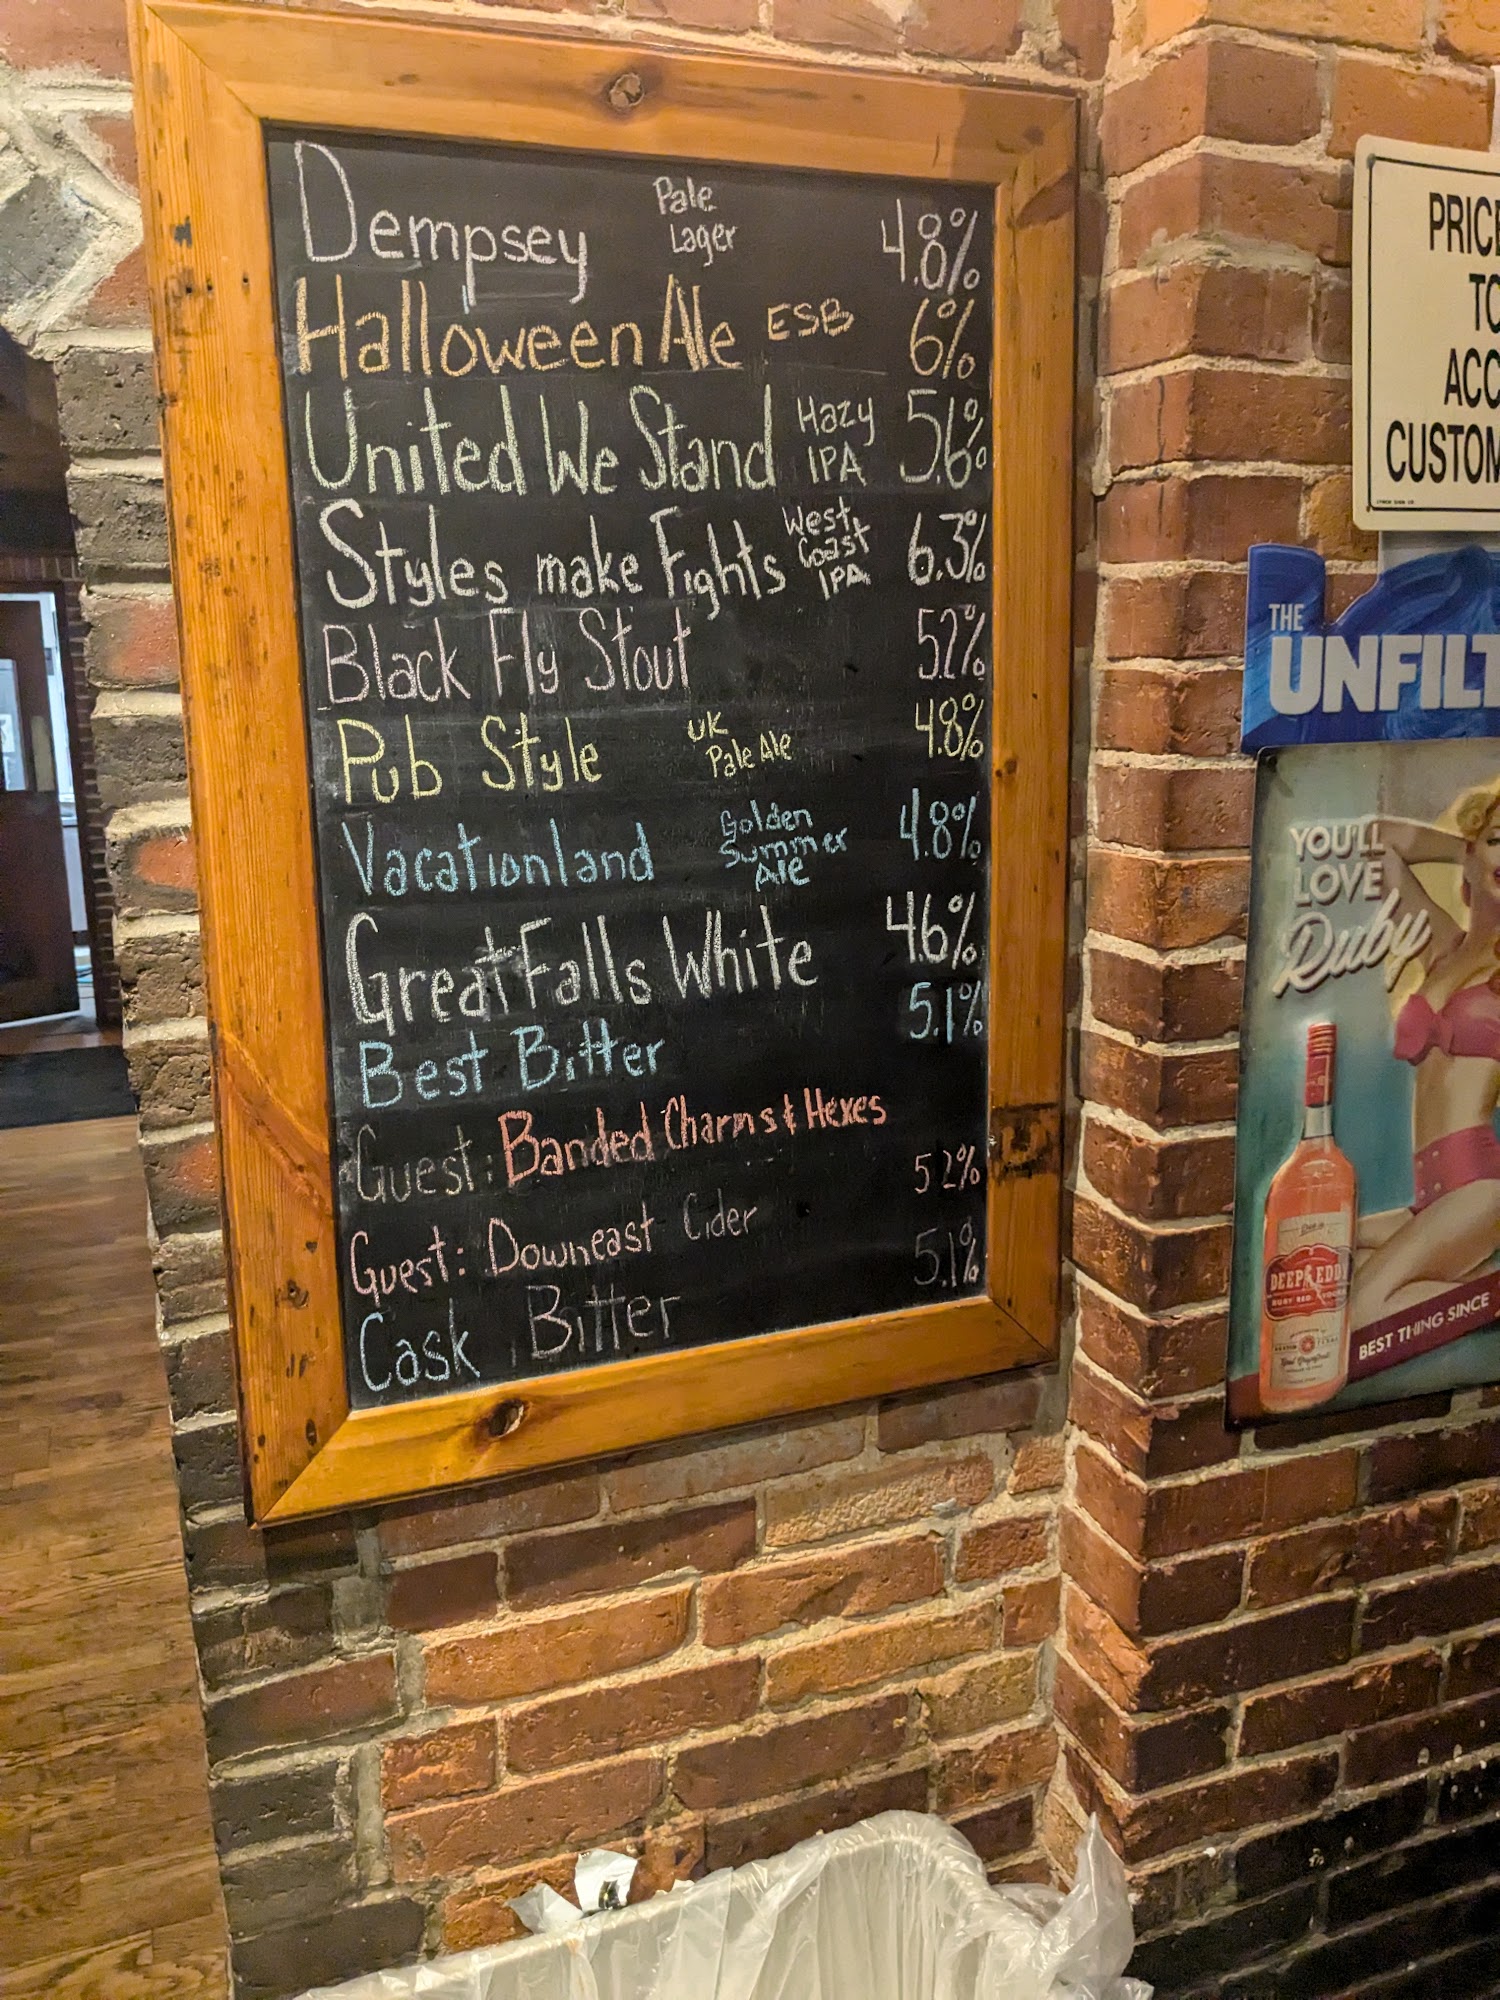 Dempsey Pale Lager 4.8%
Halloween Ale ESB 6%
United We Stand Hazy IPA 5.6%
Styles make Fights West Coast IPA 6.3%
Black Fly Stout 5.2%
Pub Style UK Pale Ale 4.8%
Vacationland Golden Summer Ale 4.8%
Great Falls White 4.6%
Best Bitter 5.1%
Guest: Banded Charms & Hexes
Guest: Downeast Cider 5.2%
Cask Bitter 5.1%
PRICE
TO
ACC
CUSTOM
THE
UNFILT
YOU'LL
LOVE
Ruby
DEEP EDD
RUBY RED
BEST THING SINCE